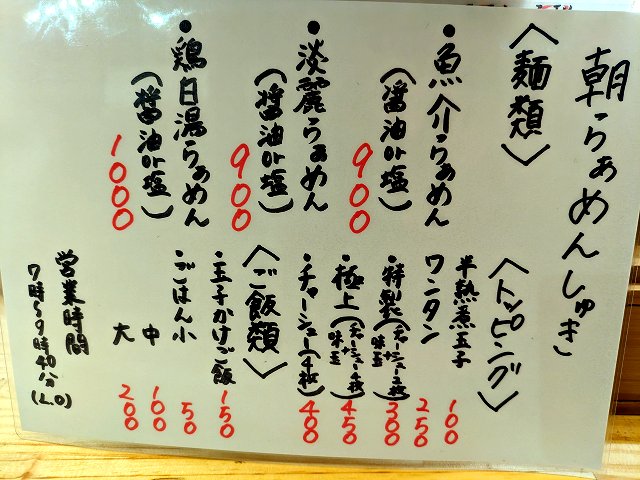 朝らぁめんしゅき
〈麺類〉
・魚介らぁめん
(醤油or塩)
900
・淡麗らぁめん
(醤油or塩)
900
・鶏白湯らぁめん
(醤油or塩)
1000
〈トッピング〉
半熟煮玉子 100
ワンタン 250
・特製(チャーシュー2枚+味玉 300
・極上(チャーシュー4枚+味玉 450
・チャーシュー(4枚) 400
〈ご飯類〉
・玉子かけご飯 150
・ごはん小 50
中 100
大 200
営業時間
7時〜9時40分(L.O)